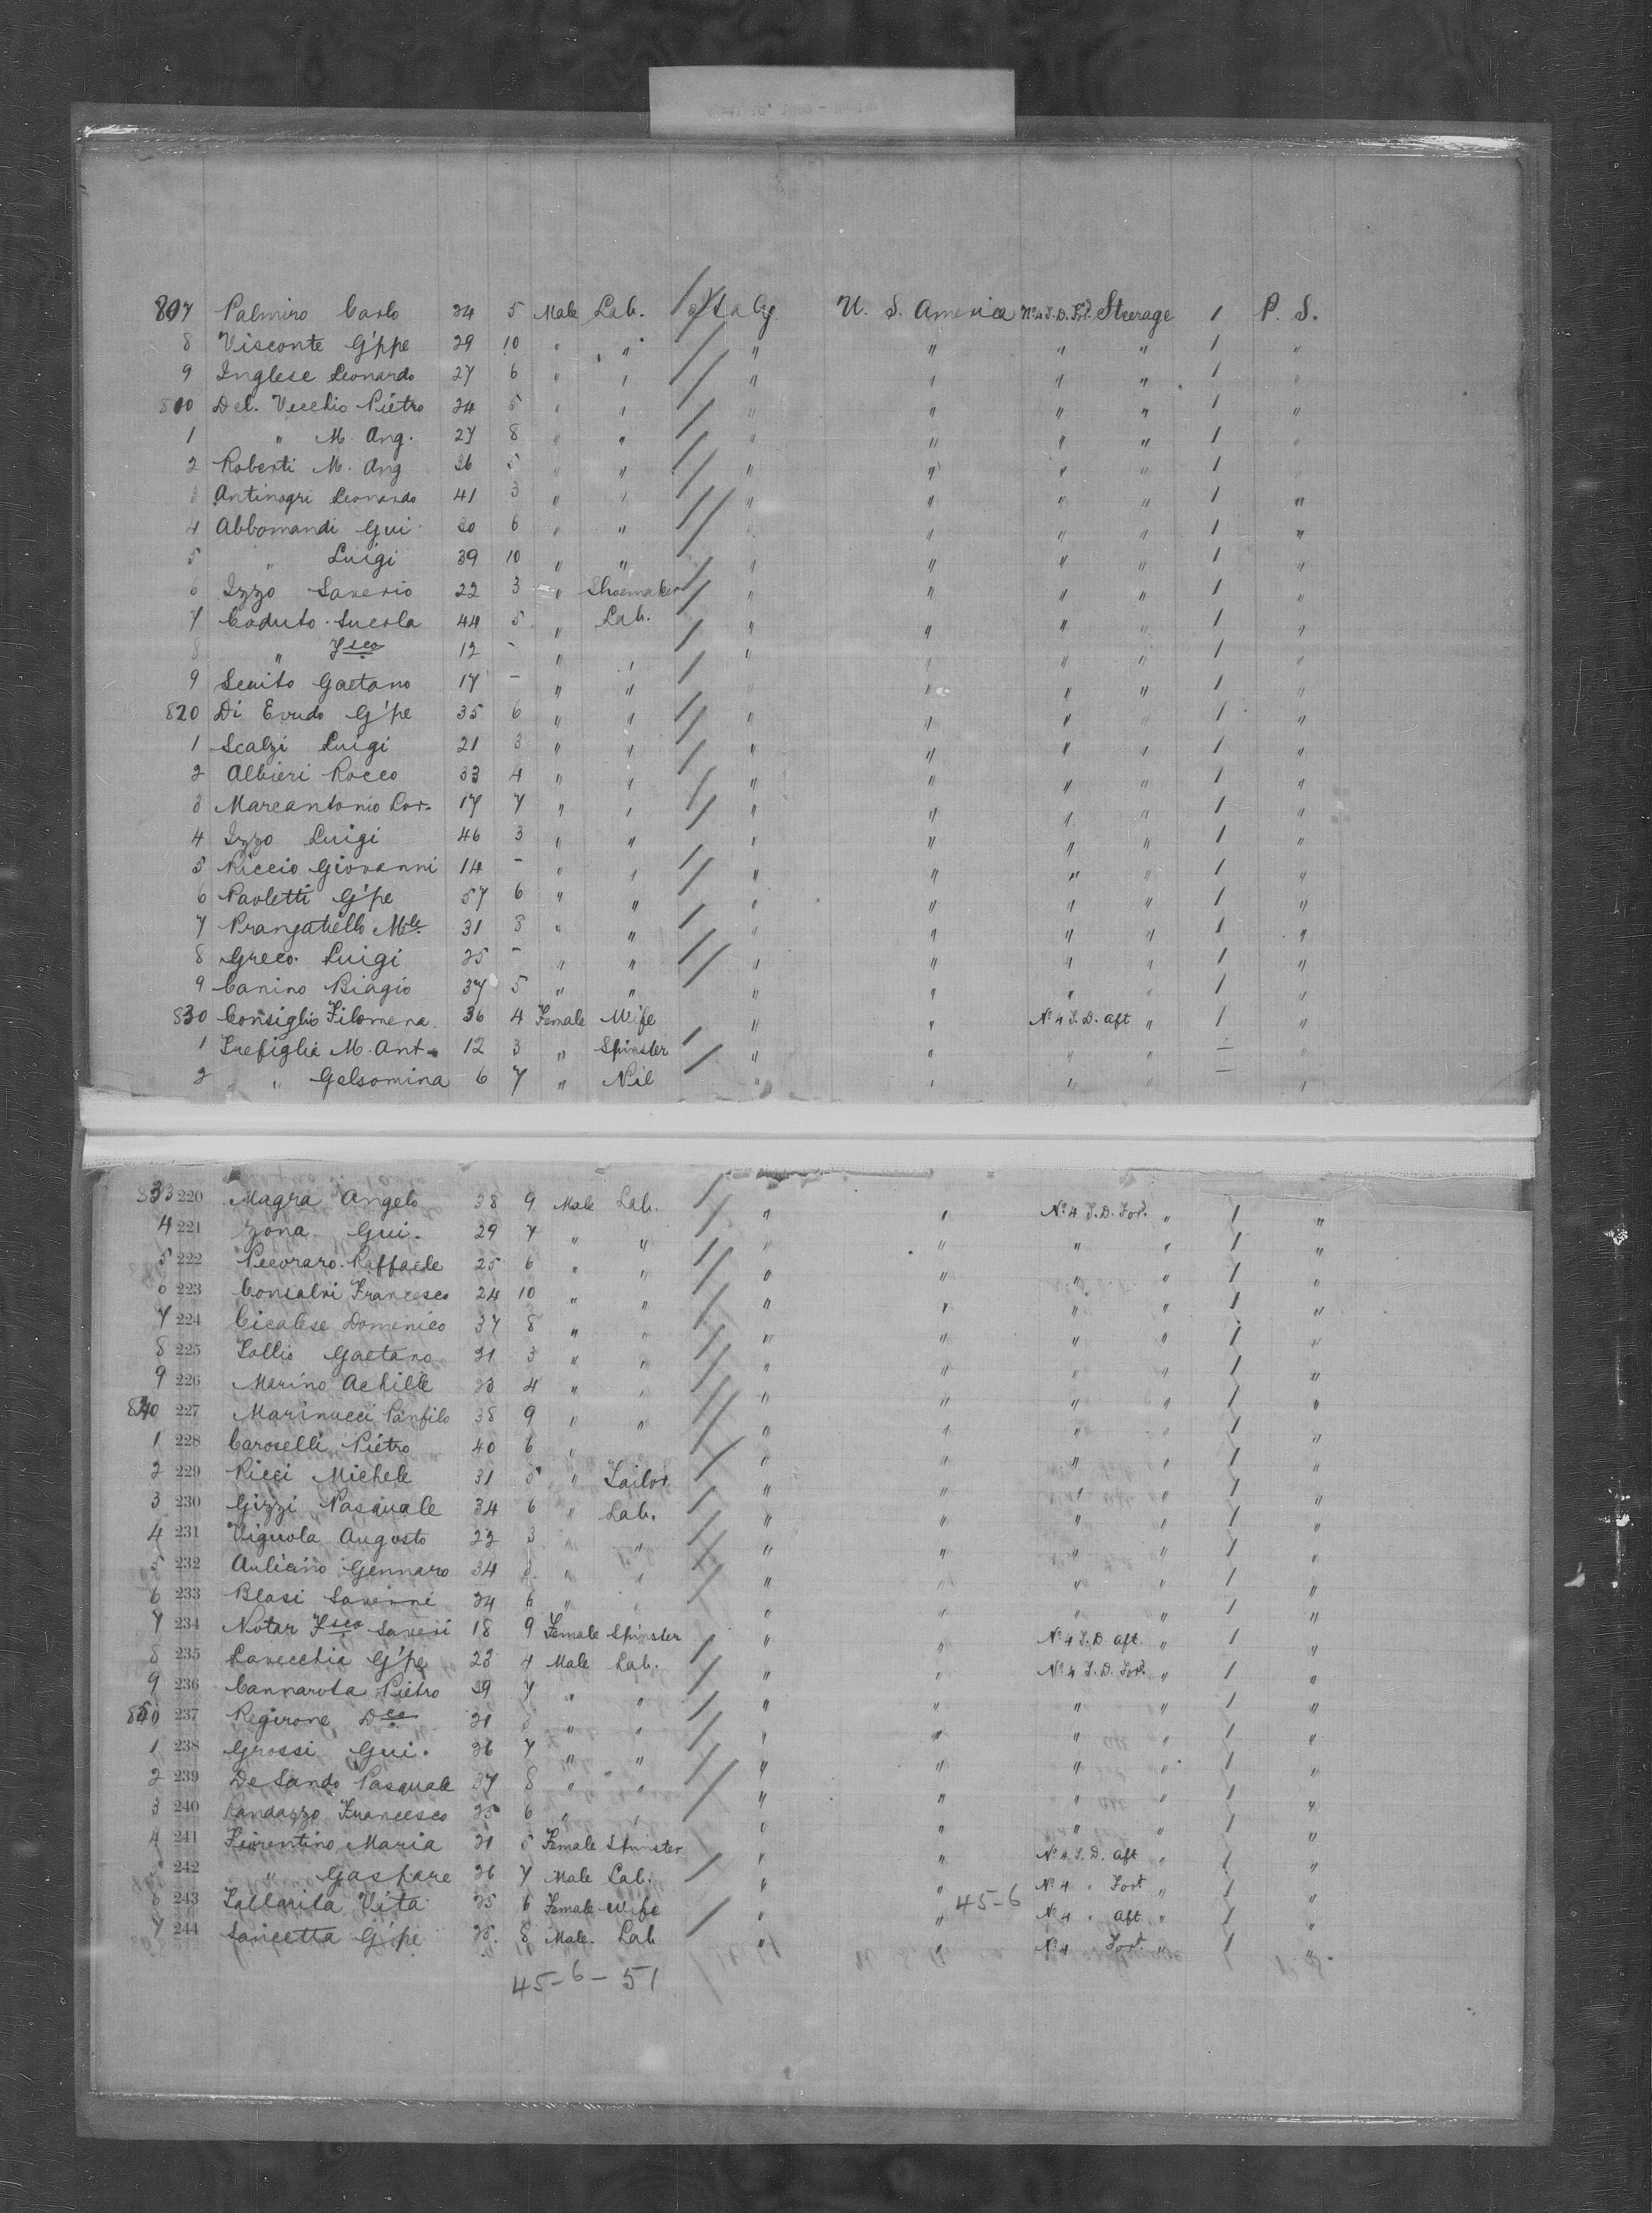 807 Palmiro Carlo 24 5 Male Lab. Italy U. S. America No 4 S. D. For. Steerage 1 P. S.
8 Visconte G'ppe 29 10 " " " " " " 1 "
9 Inglese Leonardo 27 6 " " " " " " 1 "
810 Del. Vecchio Pietro 24 5 " " " " " " 1 "
1 " M. Ang. 27 8 " " " " " " 1 "
2 Roberti M. Ang 26 5 " " " " " " 1 "
3 Antinogri Leonardo 41 3 " " " " " " 1 "
4 Abbomandi Gui. 20 6 " " " " " " 1 "
5 " Luigi 39 10 " " " " " " 1 "
6 Izzo Saverio 22 3 " Shoemaker " " " " 1 "
7 Caduto 44 5 " Lab. " " " " 1 "
8 " Fsco 12 - " " " " " " 1 "
9 Scuito Gaetano 17 - " " " " " " 1 "
820 Di Evudo G'pe 35 6 " " " " " " 1 "
1 Scalzi Luigi 21 3 " " " " " " 1 "
2 Albieri Rocco 33 4 " " " " " " 1 "
3 Marcantonio Lor. 17 7 " " " " " " 1 "
4 Izzo Luigi 46 3 " " " " " " 1 "
5 Riccio Giovanni 14 - " " " " " " 1 "
6 Paoletti G'pe 57 6 " " " " " " 1 "
7 Prangatiello Mle. 31 8 " " " " " " 1 "
8 Greco. Luigi 25 - " " " " " " 1 "
9 Canino Biagio 37 5 " " " " " " 1 "
830 Consiglio Filomena 36 4 Female Wife " " No 4 S. D. Aft " 1 "
1 Trefiglia M. Ant. 12 3 " Spinster " " " " - "
2 " Gelsomina 6 7 " Nil " " " " - "
833 220 Magra Angelo 38 9 Male Lab. " " No 4 S. D. For. " 1 "
4 221 Zona Gui. 29 7 " " " " " " 1 "
5 222 Pecoraro. Raffaele 25 6 " " " " " " 1 "
6 223 Consalvi Francesco 24 10 " " " " " " 1 "
7 224 Cicalese Domenico 37 8 " " " " " " 1 "
8 225 Lollio Gaetano 21 3 " " " " " " 1 "
9 226 Marino Achille 23 4 " " " " " " 1 "
840 227 Marinucci Panfilo 38 9 " " " " " " 1 "
1 228 Caroselli Pietro 40 6 " " " " " 1 "
2 229 Ricci Michele 31 5 " Tailor " " " " 1 "
3 230 Gizzi Pasquale 34 6 " Lab. " " " " 1 "
4 231 Vignola Augosto 22 3 " " " " " " 1 "
5 232 Aulicino Gennaro 34 " " " " " " 1 "
6 233 Blasi Saverine 24 6 " " " " " " 1 "
7 234 Notar Fsco Saveri 18 9 Female Spinster " " No 4 S. D. Aft. " 1 "
8 235 Lavecchia G'pe 23 4 Male Lab. " " No 4 S. D. For. " 1 "
9 236 Cannarota Pietro 39 7 " " " " " " 1 "
850 237 Regirone Dco 21 3 " " " " " " 1 "
1 238 Grossi Gui. 26 7 " " " " " " 1 "
2 239 De Sando Pasquale 37 8 " " " " " " 1 "
3 240 Randazzo Francesco 25 6 " " " " " " 1 "
4 241 Fiorentino Maria 21 5 Female Spinster " " No 4 S. D. Aft " 1 "
5 242 " Gaspare 26 7 Male Lab. " " No 4 " For. " 1 "
6 243 Tallarita Vita 25 6 Female Wife " " 45-6 No 4 " Aft " 1 "
7 244 Sancetta G'pe 25. 8 Male. Lab " " No 4 For. " 1 "
45-6-51